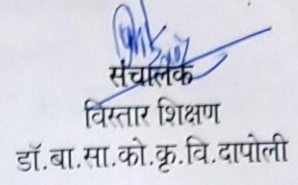 संचालक
विस्तार शिक्षण
डॉ.बा.सा.को.कृ.वि.दापोली